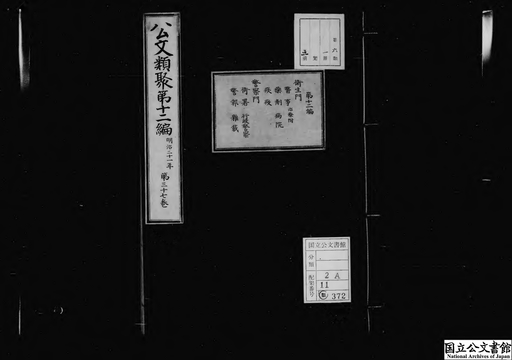 公文類聚第十二編 明治二十一年 第三十七巻
第十二編
衛生門
醫事
藥劑 病院
疾疫
警察門
衙署 行政警察
警部 雜載
国立公文書館
分類
配架番号
2 A
11
372
国立公文書館
National Archives of Japan